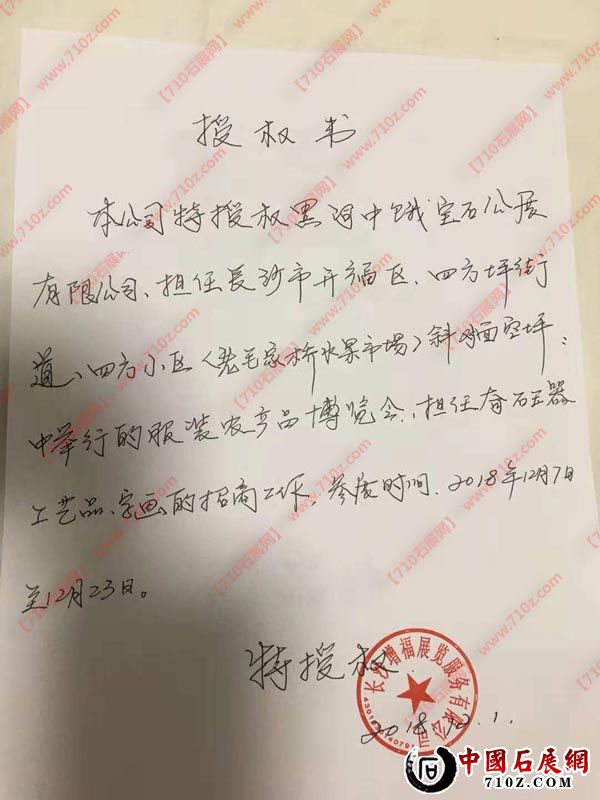 授权书
本公司特授权黑河中俄宝石公展
有限公司、担任长沙市开福区、四方坪街
道、四方小区〈老毛家桥水果市场〉斜对面空坪：
中举行的服装农产品博览会、担任奇石玉器
工艺品、字画的招商工作、参展时间、2018年12月7日
至12月23日。
特授权
长沙增福展览服务有限公司
2018.12.1.
【710石展网】www.710z.com
中國石展網
710z.com